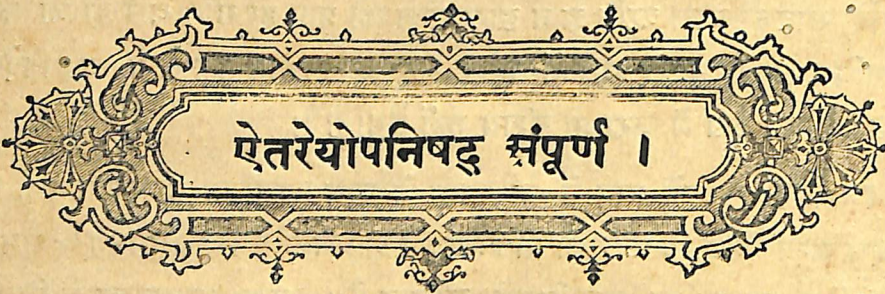 ऐतरेयोपनिषद् संपूर्ण ।